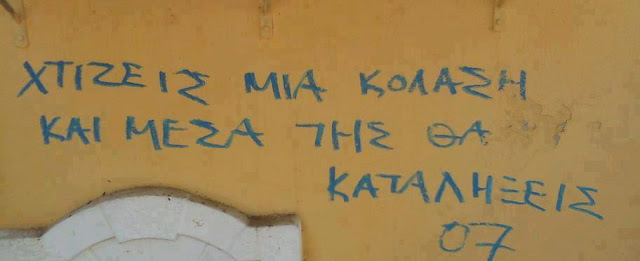 ΧΤΙΖΕΙΣ ΜΙΑ ΚΟΛΑΣΗ
ΚΑΙ ΜΕΣΑ ΤΗΣ ΘΑ
ΚΑΤΑΛΗΞΕΙΣ
07